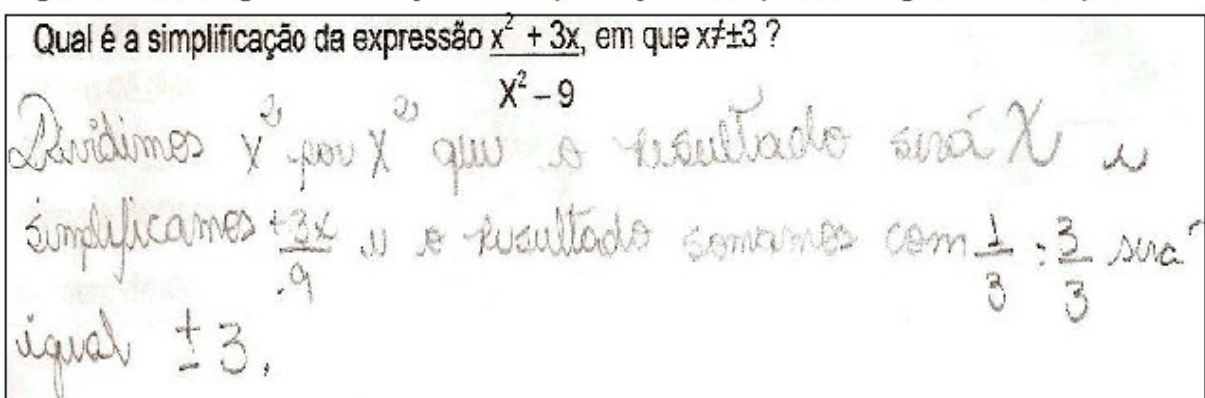 Qual é a simplificação da expressão x² + 3x, em que x≠±3 ?
X² – 9
Dividimos x² por x² que o resultado será X e
simplificamos +3x e o resultado somamos com 1 : 3 será
-9 3 3
igual ± 3.